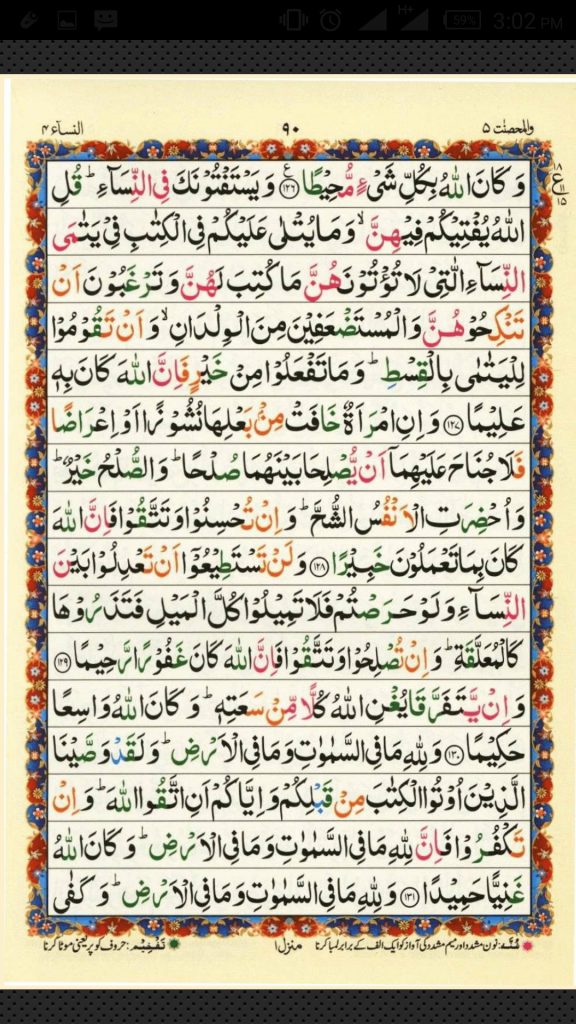 H+
59%
3:02 PM
والمحصنٰت ۵
۹۰
النسآء ۴
ع
۱۸
۱۱
۱۵
وَكَانَ اللّٰهُ بِكُلِّ شَیْءٍ مُّحِیْطًا ﴿۱۲۶﴾ ع وَیَسْتَفْتُوْنَكَ فِی النِّسَآءِ ؕ قُلِ
اللّٰهُ یُفْتِیْكُمْ فِیْهِنَّ ۙ وَمَا یُتْلٰی عَلَیْكُمْ فِی الْكِتٰبِ فِیْ یَتٰمَی
النِّسَآءِ الّٰتِیْ لَا تُؤْتُوْنَهُنَّ مَا كُتِبَ لَهُنَّ وَتَرْغَبُوْنَ اَنْ
تَنْكِحُوْهُنَّ وَالْمُسْتَضْعَفِیْنَ مِنَ الْوِلْدَانِ ۙ وَاَنْ تَقُوْمُوْا
لِلْیَتٰمٰی بِالْقِسْطِ ؕ وَمَا تَفْعَلُوْا مِنْ خَیْرٍ فَاِنَّ اللّٰهَ كَانَ بِهٖ
عَلِیْمًا ﴿۱۲۷﴾ وَاِنِ امْرَاَةٌ خَافَتْ مِنْۢ بَعْلِهَا نُشُوْزًا اَوْ اِعْرَاضًا
فَلَا جُنَاحَ عَلَیْهِمَاۤ اَنْ یُّصْلِحَا بَیْنَهُمَا صُلْحًا ؕ وَالصُّلْحُ خَیْرٌ ؕ
وَاُحْضِرَتِ الْاَنْفُسُ الشُّحَّ ؕ وَاِنْ تُحْسِنُوْا وَتَتَّقُوْا فَاِنَّ اللّٰهَ
كَانَ بِمَا تَعْمَلُوْنَ خَبِیْرًا ﴿۱۲۸﴾ وَلَنْ تَسْتَطِیْعُوْۤا اَنْ تَعْدِلُوْا بَیْنَ
النِّسَآءِ وَلَوْ حَرَصْتُمْ فَلَا تَمِیْلُوْا كُلَّ الْمَیْلِ فَتَذَرُوْهَا
كَالْمُعَلَّقَةِ ؕ وَاِنْ تُصْلِحُوْا وَتَتَّقُوْا فَاِنَّ اللّٰهَ كَانَ غَفُوْرًا رَّحِیْمًا ﴿۱۲۹﴾
وَاِنْ یَّتَفَرَّقَا یُغْنِ اللّٰهُ كُلًّا مِّنْ سَعَتِهٖ ؕ وَكَانَ اللّٰهُ وَاسِعًا
حَكِیْمًا ﴿۱۳۰﴾ وَلِلّٰهِ مَا فِی السَّمٰوٰتِ وَمَا فِی الْاَرْضِ ؕ وَلَقَدْ وَصَّیْنَا
الَّذِیْنَ اُوْتُوا الْكِتٰبَ مِنْ قَبْلِكُمْ وَاِیَّاكُمْ اَنِ اتَّقُوا اللّٰهَ ؕ وَاِنْ
تَكْفُرُوْا فَاِنَّ لِلّٰهِ مَا فِی السَّمٰوٰتِ وَمَا فِی الْاَرْضِ ؕ وَكَانَ اللّٰهُ
غَنِیًّا حَمِیْدًا ﴿۱۳۱﴾ وَلِلّٰهِ مَا فِی السَّمٰوٰتِ وَمَا فِی الْاَرْضِ ؕ وَكَفٰی
غُنَّه: نون مشدد اور میم مشدد کی آواز کو ایک الف کے برابر لمبا کرنا
منزل ۱
تَفْخِیْم: حروف کو پر یعنی موٹا کرنا